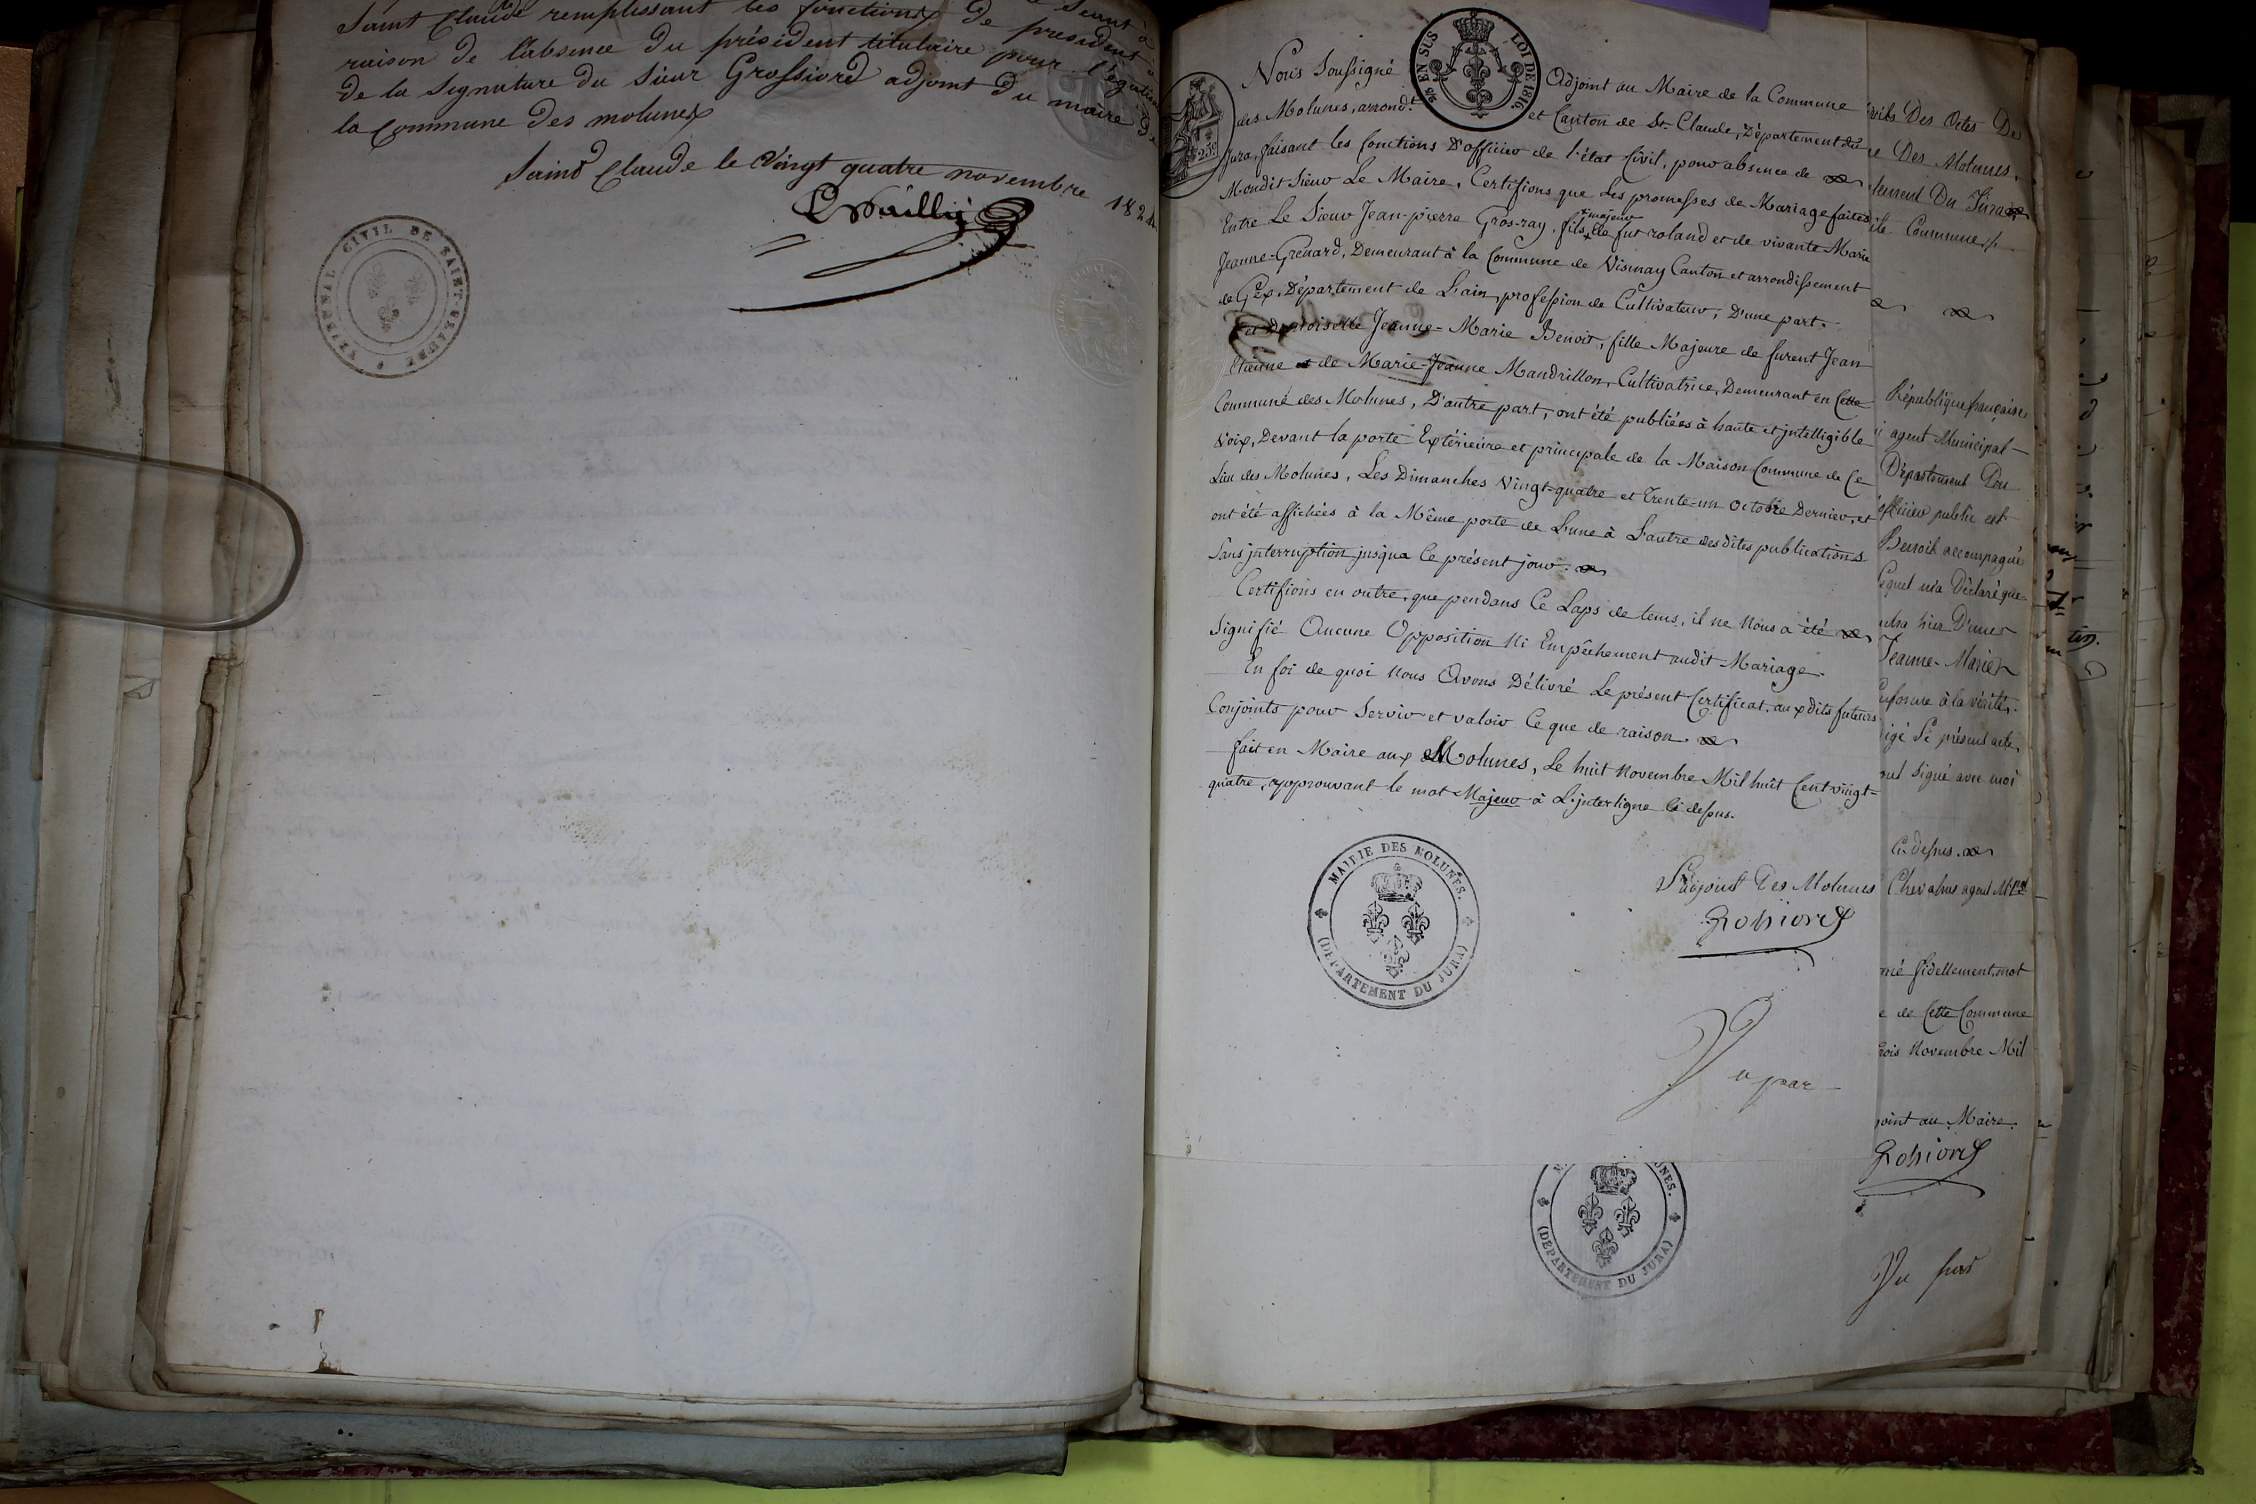 Saint Claude remplissant les fonctions de president à
raison de l'absence du président titulaire pour légation
de la signature du sieur Grossiord adjoint du maire de
la Commune des molunes
Saint Claude le Vingt quatre novembre 182
TRIBUNAL CIVIL DE SAINT-CLAUDE
Nous Soussigné Adjoint au Maire de la Commune
EN SUS LOI DE 1816.
des Molunes, arrond.t et Canton de St. Claude, Département du
Jura, faisant les fonctions D'officier de l'état Civil, pour absence de
Mondit Sieur Le Maire, Certifions que les promesses de Mariage faites
Entre Le Sieur Jean-pierre Gros-ray, fils + de fut roland et de vivante Marie
+ majeur
Jeanne-Grenard, Demeurant à la Commune de Vismay Canton et arrondissement
de Gex, Département de Lain, profession de Cultivateur, D'une part.
Et Demoiselle Jeanne-Marie Benoit, fille Majeure de furent Jean
Etienne et de Marie-Jeanne Mandrillon, Cultivatrice, Demeurant en Cette
Commune des Molunes, D'autre part, ont été publiées à haute et intelligible
Voix, Devant la porte Extérieure et principale de la Maison Commune de Ce
Lieu des Molunes, Les Dimanches Vingt-quatre et Trente-un Octobre Dernier, et
ont été affichées à la Même porte de L'une à L'autre desdites publications
Sans interruption jusqu'a Ce présent jour.
Certifions en outre, que pendans Ce Laps de tems, il ne Nous a été
Signifié Aucune Opposition Ni Empêchement audit Mariage.
En foi de quoi Nous Avons Délivré Le présent Certificat, aux dits futurs
Conjoints pour Servir et valoir Ce que de raison.
fait en Mairie aux Molunes, Le huit Novembre Mil huit Cent vingt=
quatre, approuvant le mot Majeur à L'interligne Ci dessus.
MAIRIE DES MOLUNES.
(DEPARTEMENT DU JURA)
L'adjoint Des Molunes
Vu par
Des Actes De
Des Molunes.
Du Jura
Commune
République française
agent Municipal
Département Du
officier public est
Benoit accompagné
lequel m'a Déclaré que
hier D'une
Jeanne-Marie
conforme à la vérité
présent acte,
ont signé avec moi
Ci-dessus.
agent M.pal
fidellement, mot
de Cette Commune
Novembre Mil
au Maire.
(DEPARTEMENT DU JURA)
Vu par